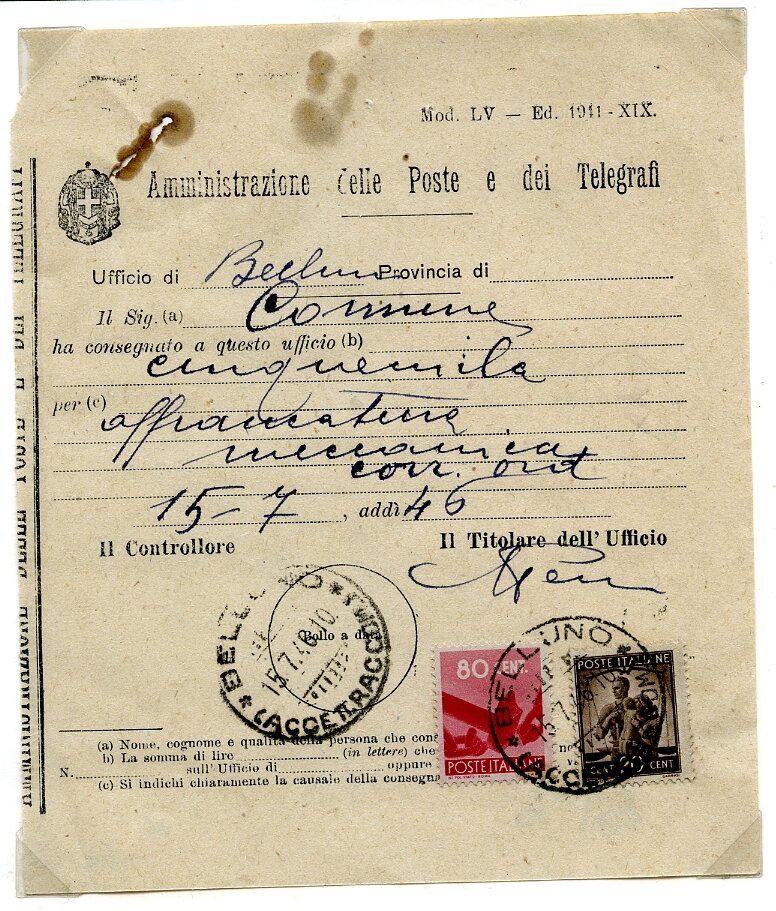 Mod. LV — Ed. 1941 - XIX.
Amministrazione delle Poste e dei Telegrafi
Ufficio di Belluno Provincia di
Il Sig. (a) Comune
ha consegnato a questo ufficio (b)
cinquemila
per (c) affrancatura
meccanica
corr. ord
15-7, addì 46
Il Controllore Il Titolare dell' Ufficio
BELLUNO
15.7.46.10
(ACCETT.RACCOM)
Bollo a data
80 CENT.
POSTE ITALIANE
BELLUNO
15.7.
POSTE ITALIANE
CENT 20 CENT
(a) Nome, cognome e qualità della persona che con
b) La somma di lire (in lettere) che
N. sull' Ufficio di oppure
(c) Si indichi chiaramente la causale della consegna
AMMINISTRAZIONE DELLE POSTE E DEI TELEGRAFI